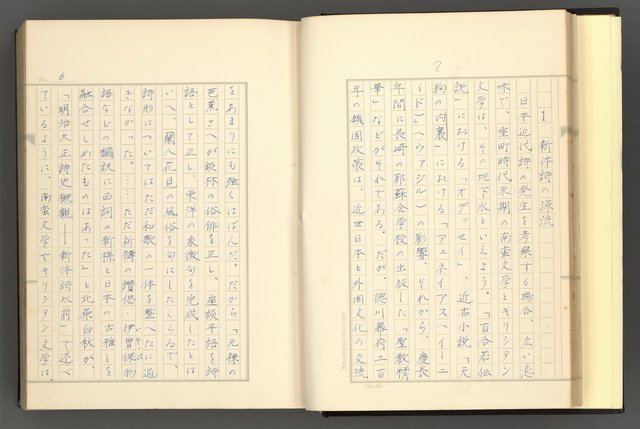 7
1 新体詩の源流
日本近代詩の発生を考察する場合、広い意
味で、室町時代末期の南蛮文学とキリシタン
文学は、その地下水といえよう。「百合若伝
説」における「オデッセイ」、近古小説「天
狗の内裏」における「アエネイアス(イーニ
イド)」(ヴァジル)の影響、それから、慶長
年間に長崎の耶蘇会学校の出版した「聖教精
華」などがそれである。だが、徳川幕府三百
年の鎖国政策は、近世日本と外国文化の交流
No. 6
をあまりにも強くはばんだ。だから「元禄の
芭蕉さへが談林の俗俳を正し、座談平語を詩
語として正し、東洋の象徴句を完成したとは
いへ、蘭人花見の風俗を句にしたくらゐで、
詩形についてはただ和歌の一体を整へたに過
きなかった。……ただ祈禱の讃偈・伊曾保物
語などの飜訳に西詞の新様と日本の古雅とを
融合せしめたものはあった」と北原白秋が、
「明治大正詩史概観――新体詩以前」で述べ
ているように、南蛮文学やキリシタン文学は、